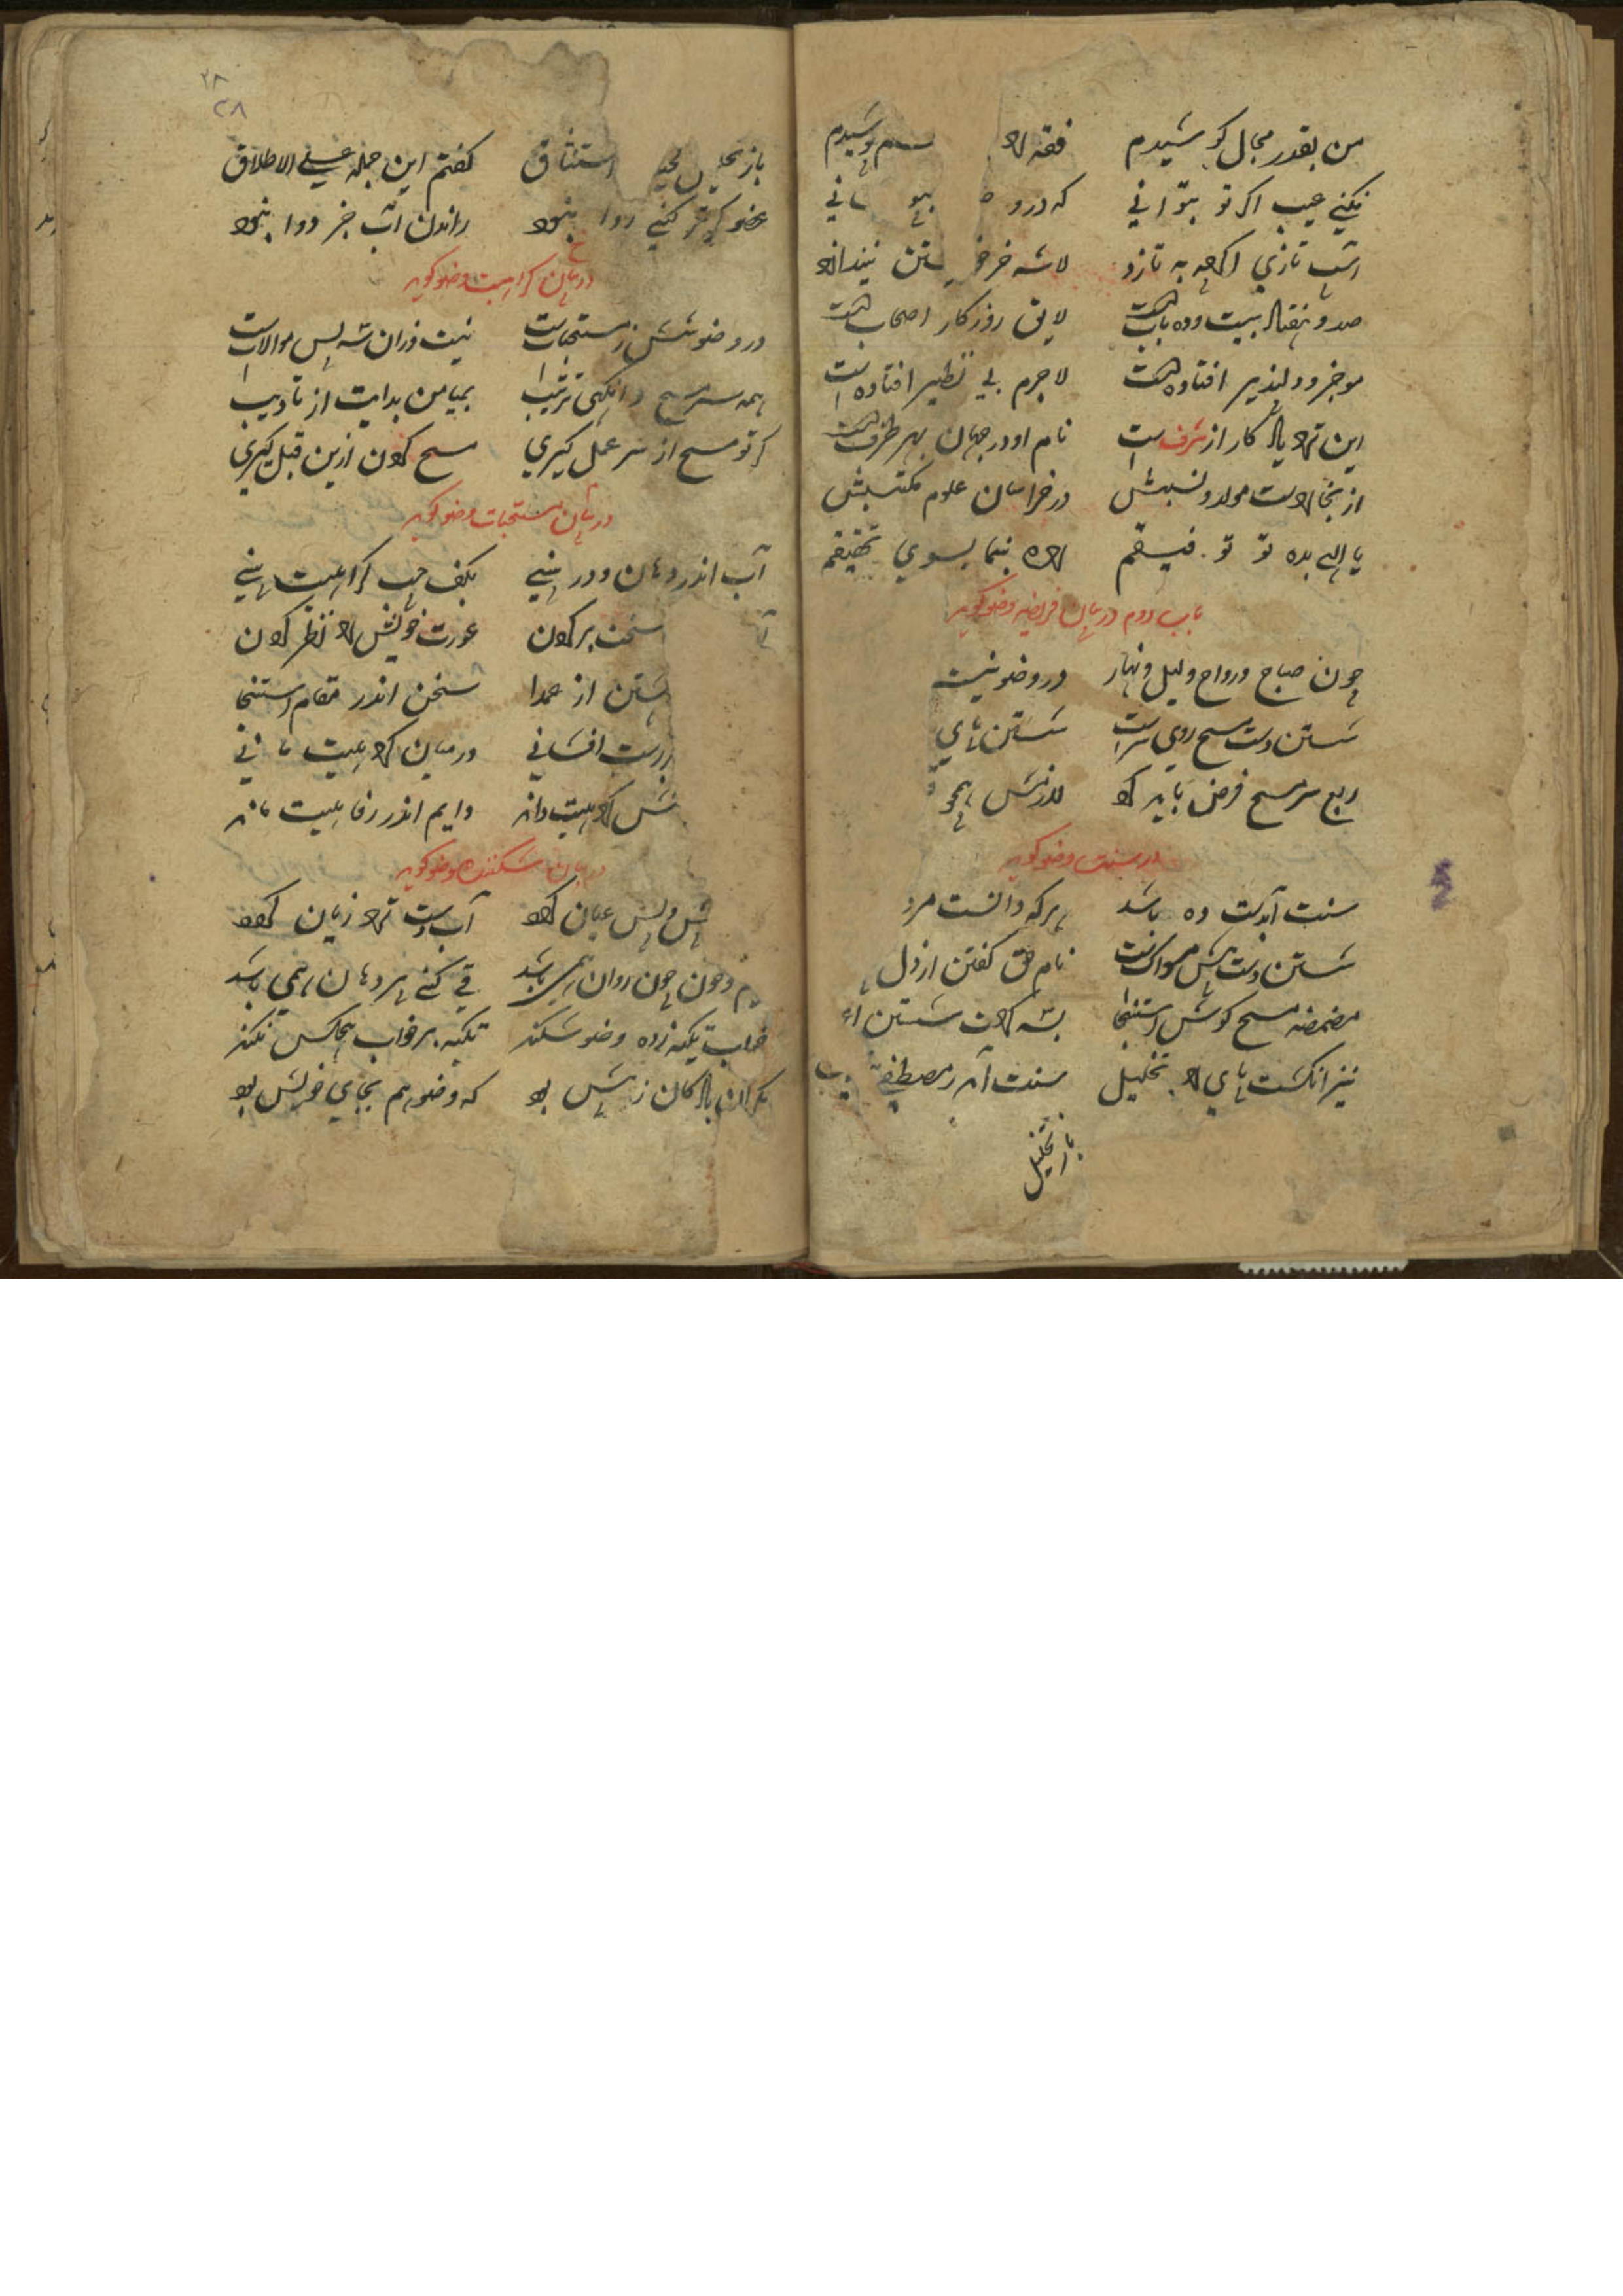 من بقدر مجال کوشیدم فقه را
نکنی عیب اگر تو بتوانی که درو
اسپ تازی اگرچه به تازد لاشه خر خو یشتن نیندازد
صد و هفتاد بیت و ده بابست لایق روزکار اصحابست
موجز و دلپذیر افتاده است لاجرم بی نظیر افتاده است
این ترا یادکار از شرف است نام او در جهان بهر طرف است
از بخاراست مولد و نسبش در خراسان علوم مکتسبش
یا الهی بده تو توفیقم راه بنما بسوی تحقیقم
باب دوم در بیان فریضه وضو کوید
چون صباح و رواح و لیل و نهار در وضو نیست
شستن دست مسح روی سر است شستن پای
ربع سر مسح فرض باید کرد
در سنت وضو کوید
سنت آبدست ده باشد هر که دانست مرد
شستن دست پیش مسواکست نام حق کفتن از دل
مضمضه مسح کوش استنجا بسه کرات شستن
نیز انکشت پای را تخلیل سنت آمد ز مصطفی
باز تخلیل
۲۸
۲۸
باز تخلیل لحیه استنشاق کفتم این جمله علی الاطلاق
عضو کر تر کنی روا نبود راندن آب جز روا نبود
در بیان کراهیت وضو کوید
در وضو شش ز مستحباتست نیت و زان سپس موالاتست
همه سر مسح و انکهی ترتیب بمیامن بدایت از تادیب
کر تو مسح از سر عمل کیری مسح کردن ازین قبل کیری
در بیان مستحبات وضو کوید
آب اندر دهان و در بینی بکف چپ کراهیت بینی
سخن بر کردن عورت خویش را نظر کردن
شستن از عمدا سخن اندر مقام استنجا
بر راست افشانی در میان کراهیت مانی
کراهیت داند دایم اندر رفاهیت ماند
در بیان شکننده وضو کوید
پیش و پس عیان کردد آب دست ترا زیان کردد
چون روان همی باشد قی کنی پر دهان همی باشد
خواب تکیه زده وضو شکند تکیه بر خواب هیچکس نکند
مکر آن بادکان ز پیش بود که وضو هم بجای خویش بود